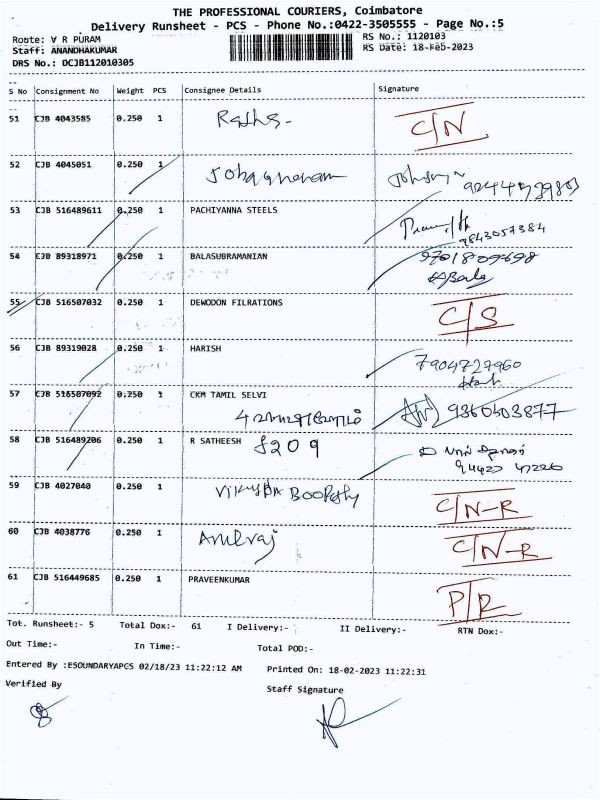 THE PROFESSIONAL COURIERS, Coimbatore
Delivery Runsheet - PCS - Phone No.:0422-3505555 - Page No.:5
Route: V R PURAM RS No.: 1120103
Staff: ANANDHAKUMAR RS Date: 18-Feb-2023
DRS No.: DCJB112010305
S No Consignment No Weight PCS Consignee Details Signature
51 CJB 4043585 0.250 1 C/N
52 CJB 4045051 0.250 1
53 CJB 516489611 0.250 1 PACHIYANNA STEELS
9843057384
54 CJB 89318971 0.250 1 BALASUBRAMANIAN
55 CJB 516507032 0.250 1 DEWODON FILRATIONS C/S
56 CJB 89319028 0.250 1 HARISH
7904727960
57 CJB 516507092 0.250 1 CKM TAMIL SELVI
9360603877
58 CJB 516489206 0.250 1 R SATHEESH
59 CJB 4027040 0.250 1 C/N-R
60 CJB 4038776 0.250 1 C/N-R
61 CJB 516449685 0.250 1 PRAVEENKUMAR P/R
Tot. Runsheet:- 5 Total Dox:- 61 I Delivery:- II Delivery:- RTN Dox:-
Out Time:- In Time:- Total POD:-
Entered By :ESOUNDARYAPCS 02/18/23 11:22:12 AM Printed On: 18-02-2023 11:22:31
Verified By Staff Signature